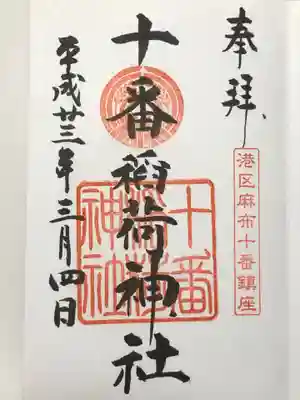 奉拝
港区麻布十番鎮座
十番稲荷神社
十番稲荷神社
平成廿三年三月四日